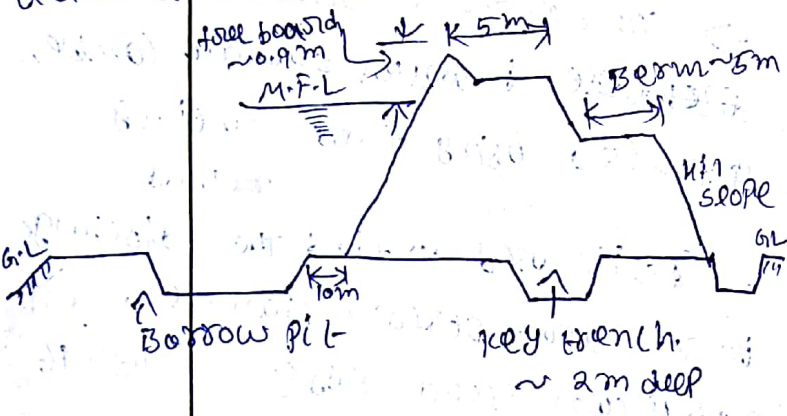 free board
~0.9m
M.F.L
5m
Berm ~5m
H:1
slope
G.L
GL
10m
Borrow Pit
key trench.
~ 2m deep